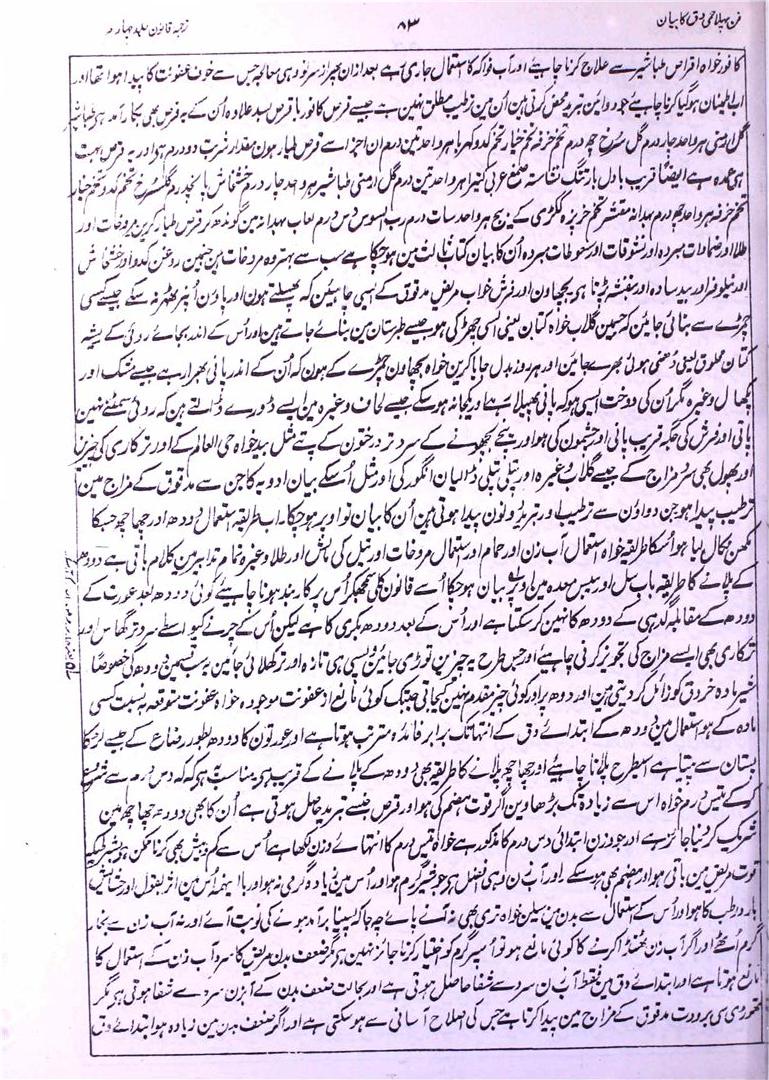 فن پہلا حمی دق کا بیان
۸۳
ترجمہ قانون جلد چہارم
کافور خواہ اقراص طباشیر سے علاج کرنا چاہیئے اور آب فواکہ کا استعمال جاری رہے بعد ازان پھر از سر نو وہی معالجہ جس سے خوف عفونت کا پیدا ہوا تھا اور
اب اطمینان ہو گیا کرنا چاہیئے جو دوائین تبرید محض کرتی ہین اُن مین ترطیب مطلق نہین ہے جیسے قرص کافور یا قرص سید علاوہ اُن کے یہ قرص بھی بکار آمد ہے طباشیر
گل ارمنی ہر واحد چار درم گل سُرخ چھ درم تخم خرفہ تخم خیار تخم کدو کہربا ہر واحد تین درم ان اجزا سے قرص طیار ہون مقدار شربت دو درم ہی اور یہ قرص بہت
ہی عمدہ ہے ایضاً قریب باول بارتنگ نشاستہ صمغ عربی کتیرا ہر واحد تین درم گل ارمنی طباشیر ہر واحد چار درم خشخاش پانچ درم گلسرخ تخم کدو و تخم خیار
تخم خرفہ ہر واحد چھ درم بہدانہ مقشر تخم خرپزہ ککڑی کے بیج ہر واحد سات درم رب السوس دس درم لعاب بہدانہ مین گوندھکر قرص طیار کرین مروخات اور
طلا اور ضمادات مبردہ اور نشوقات اور سعوطات مبردہ اُن کا بیان کتاب ثالث مین ہو چکا ہے سب سے بہتر وہ مروخات ہین جنمین روغن کدو اور خشخاش
اور نیلوفر اور بید سادہ اور بنفشہ پڑتا ہی بچھاون اور فرش خواب مریض مدقوق کے ایسی چاہئین کہ پھسلتے ہون اور پاؤن اُنپر ٹھہر نہ سکے جیسے کسی
چمڑے سے بنائی جائین کہ جسمین گلاب خواہ کتان یعنی السی چھڑکی ہو جیسے طبرستان مین بنائے جاتے ہین اور اُس کے اندر بجائے روئی کے پشہ
کتان محلوق یعنی دُھنی ہوئی بھرے جائین اور ہر روز بدل جایا کرین خواہ بچھاون چمڑے کے ہون کہ اُن کے اندر پانی بھرا رہے جیسے مشک اور
پکھال وغیرہ مگر اُن کی دوخت ایسی ہو کہ پانی پھیلا رہے اور یکجا نہ ہو سکے جیسے لحاف وغیرہ مین ایسے ڈورے ڈالتے ہین کہ روئی سمٹنے نہین
پاتی اور فرش کی جگہ قریب پانی اور چشمون کی ہو اور نیچے بچھونے کے سرد تر درختون کے پتے مثل بید خواہ حی العالم کے اور ترکاری کی چیزین
اور پھول بھی سرد مزاج کے جیسے گلاب وغیرہ اور پتلی پتلی ڈالیان انگور کی اور مثل اُسکے بیان ادویہ کا جن سے مدقوق کے مزاج مین
ترطیب پیدا ہو جن دواؤن سے ترطیب اور تبرید دونون پیدا ہوتی ہین اُن کا بیان تو اوپر ہو چکا اب طریقہ استعمال دودھ اور چھاچھ جسکا
مکھن نکال لیا ہو اُسکا طریقہ خواہ استعمال آب زن اور حمام اور استعمال مروخات اور تیل کی مالش اور طلا وغیرہ تمام تدابیر مین کلام باقی ہے دودھ
کے پلانے کا طریقہ باب سل اور یبس معدہ مین اوپر بیان ہو چکا اُسے قانون کلی سمجھکر اُس پر کاربند ہونا چاہیئے کوئی دودھ بعد عورت کے
دودھ کے مقابلہ گدھی کے دودھ کا نہین کر سکتا ہے اور اُس کے بعد دودھ بکری کا ہے لیکن اُس کے چرنے کیواسطے سرد تر گھاس اور
ترکاری بھی ایسے مزاج کی تجویز کرنی چاہیئے اور جس طرح یہ چیزین توڑی جائین ویسی ہی تازہ اور تر کھلائی جائین یہ سب قسمین دودھ کی خصوصاً
شیر مادہ خر دق کو زائل کر دیتی ہین اور دودھ پر اور کوئی چیز مقدم نہین کیجاتی جبتک کوئی مانع از عفونت موجودہ خواہ عفونت متوقعہ بہ نسبت کسی
مادہ کے ہو استعمال مین دودھ کے ابتدائے دق کے انتہا تک برابر فائدہ مترتب ہوتا ہے اور عورتون کا دودھ بطور رضاع کے جیسے لڑکا
پستان سے پیتا ہے اسیطرح پلانا چاہیئے اور چھاچھ پلانے کا طریقہ بھی دودھ کے پلانے کے قریب ہی مناسب یہ ہی کہ دس درم سے شروع
کر کے تیس درم خواہ اس سے زیادہ تک بڑھاوین اگر قوت ہضم کی ہو اور قرص جنسے تبرید حاصل ہوتی ہے اُن کا بھی دودھ چھاچھ مین
شریک کر دینا جائز ہے اور جو وزن ابتدائی دس درم کا مذکور ہے خواہ تیس درم کا انتہائے وزن لکھا ہے اُس سے کم و بیش بھی کرنا ممکن ہے بشرطیکہ
قوت مریض مین باقی ہو اور ہضم بھی ہو سکے اور آبزن وہی افضل ہی جو شیر گرم ہو اور اُس مین زیادہ گرمی نہ ہو اور با اینہمہ اُس مین اثر بقول اور حشائش
بارد رطب کا ہو اور اُس کے استعمال سے بدن مین سیلان خواہ تری بھی نہ آنے پائے چہ جائیکہ پسینا برآمد ہونے کی نوبت آئے اور نہ آب زن سے بخار
گرم اُٹھے اور اگر آب زن ٹھنڈا کرنے کا کوئی مانع ہو تو اُسپر گرم کو اختیار کرنا جائز نہین ہی مگر ضعف بدن مریض کا سرد آب زن کے استعمال کا
مانع ہوتا ہے اور ابتدائے دق مین فقط آبزن سرد سے شفا حاصل ہوتی ہے اور بحالت ضعف بدن کے آبزن سرد سے شفا ہوتی ہی مگر
تھوڑی سی برودت مدقوق کے مزاج مین پیدا کرتا ہے جس کی اصلاح آسانی سے ہو سکتی ہے اور اگر ضعف بدن مین زیادہ ہو ابتدائے دق